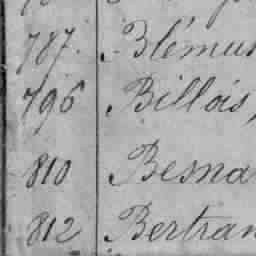 787. Blémur
796 Billois,
810 Besna
812 Bertran